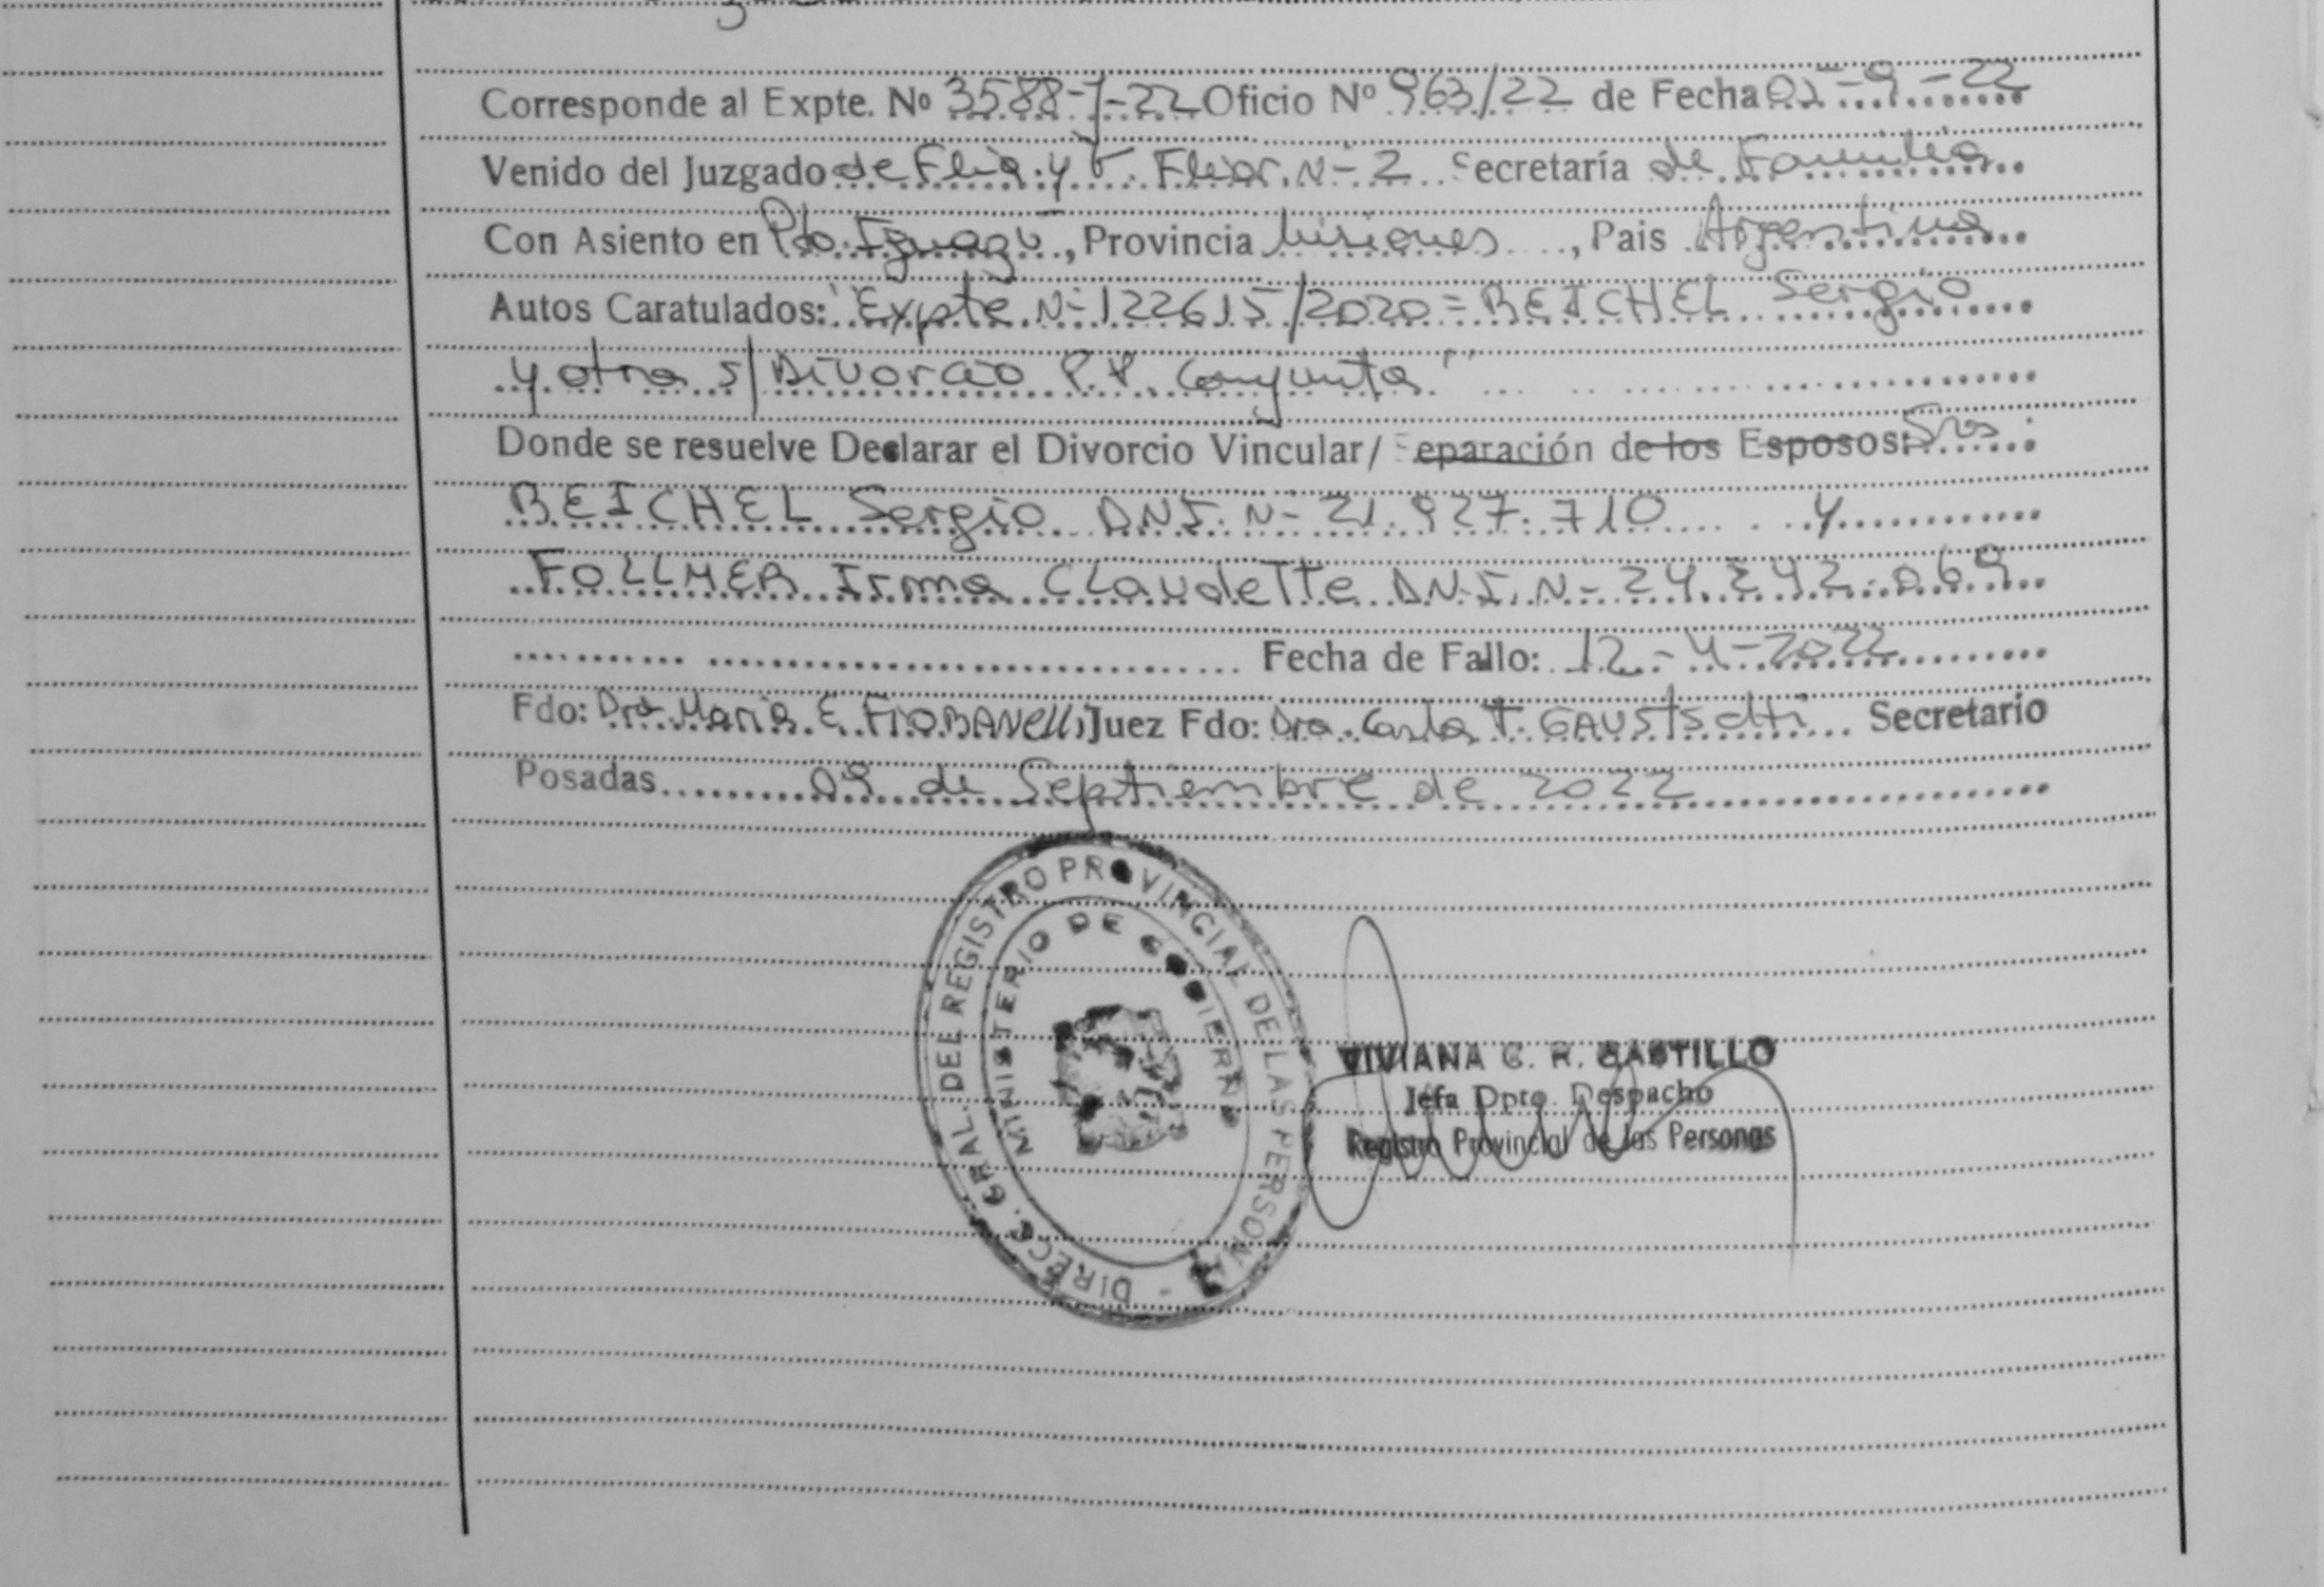 Corresponde al Expte. Nº 3588-J-22 Oficio Nº 963/22 de Fecha 02-9-22
Venido del Juzgado de Flia. y V. Fliar. N- 2 Secretaría de Familia
Con Asiento en Pto. Iguazú, Provincia Misiones, Pais Argentina
Autos Caratulados: "Expte. N- 122615/2020= BEICHEL Sergio
y otra s/ Divorcio P.P. Conjunta"
Donde se resuelve Declarar el Divorcio Vincular/ Separación de los Esposos: Sres
BEICHEL Sergio D.N.I. N- 21.927.710 y
FOLLMER Irma Claudette D.N.I. N- 24.242.069
Fecha de Fallo: 12-4-2022
Fdo: Dra. Maria E. Juez Fdo: Dra. Carla Secretario
Posadas 09 de Septiembre de 2022
DIRECC. GRAL. DEL REGISTRO PROVINCIAL DE LAS PERSONAS -
MINISTERIO DE GOBIERNO
VIVIANA C. R. CASTILLO
Jefa Dpto. Despacho
Registro Provincial de las Personas